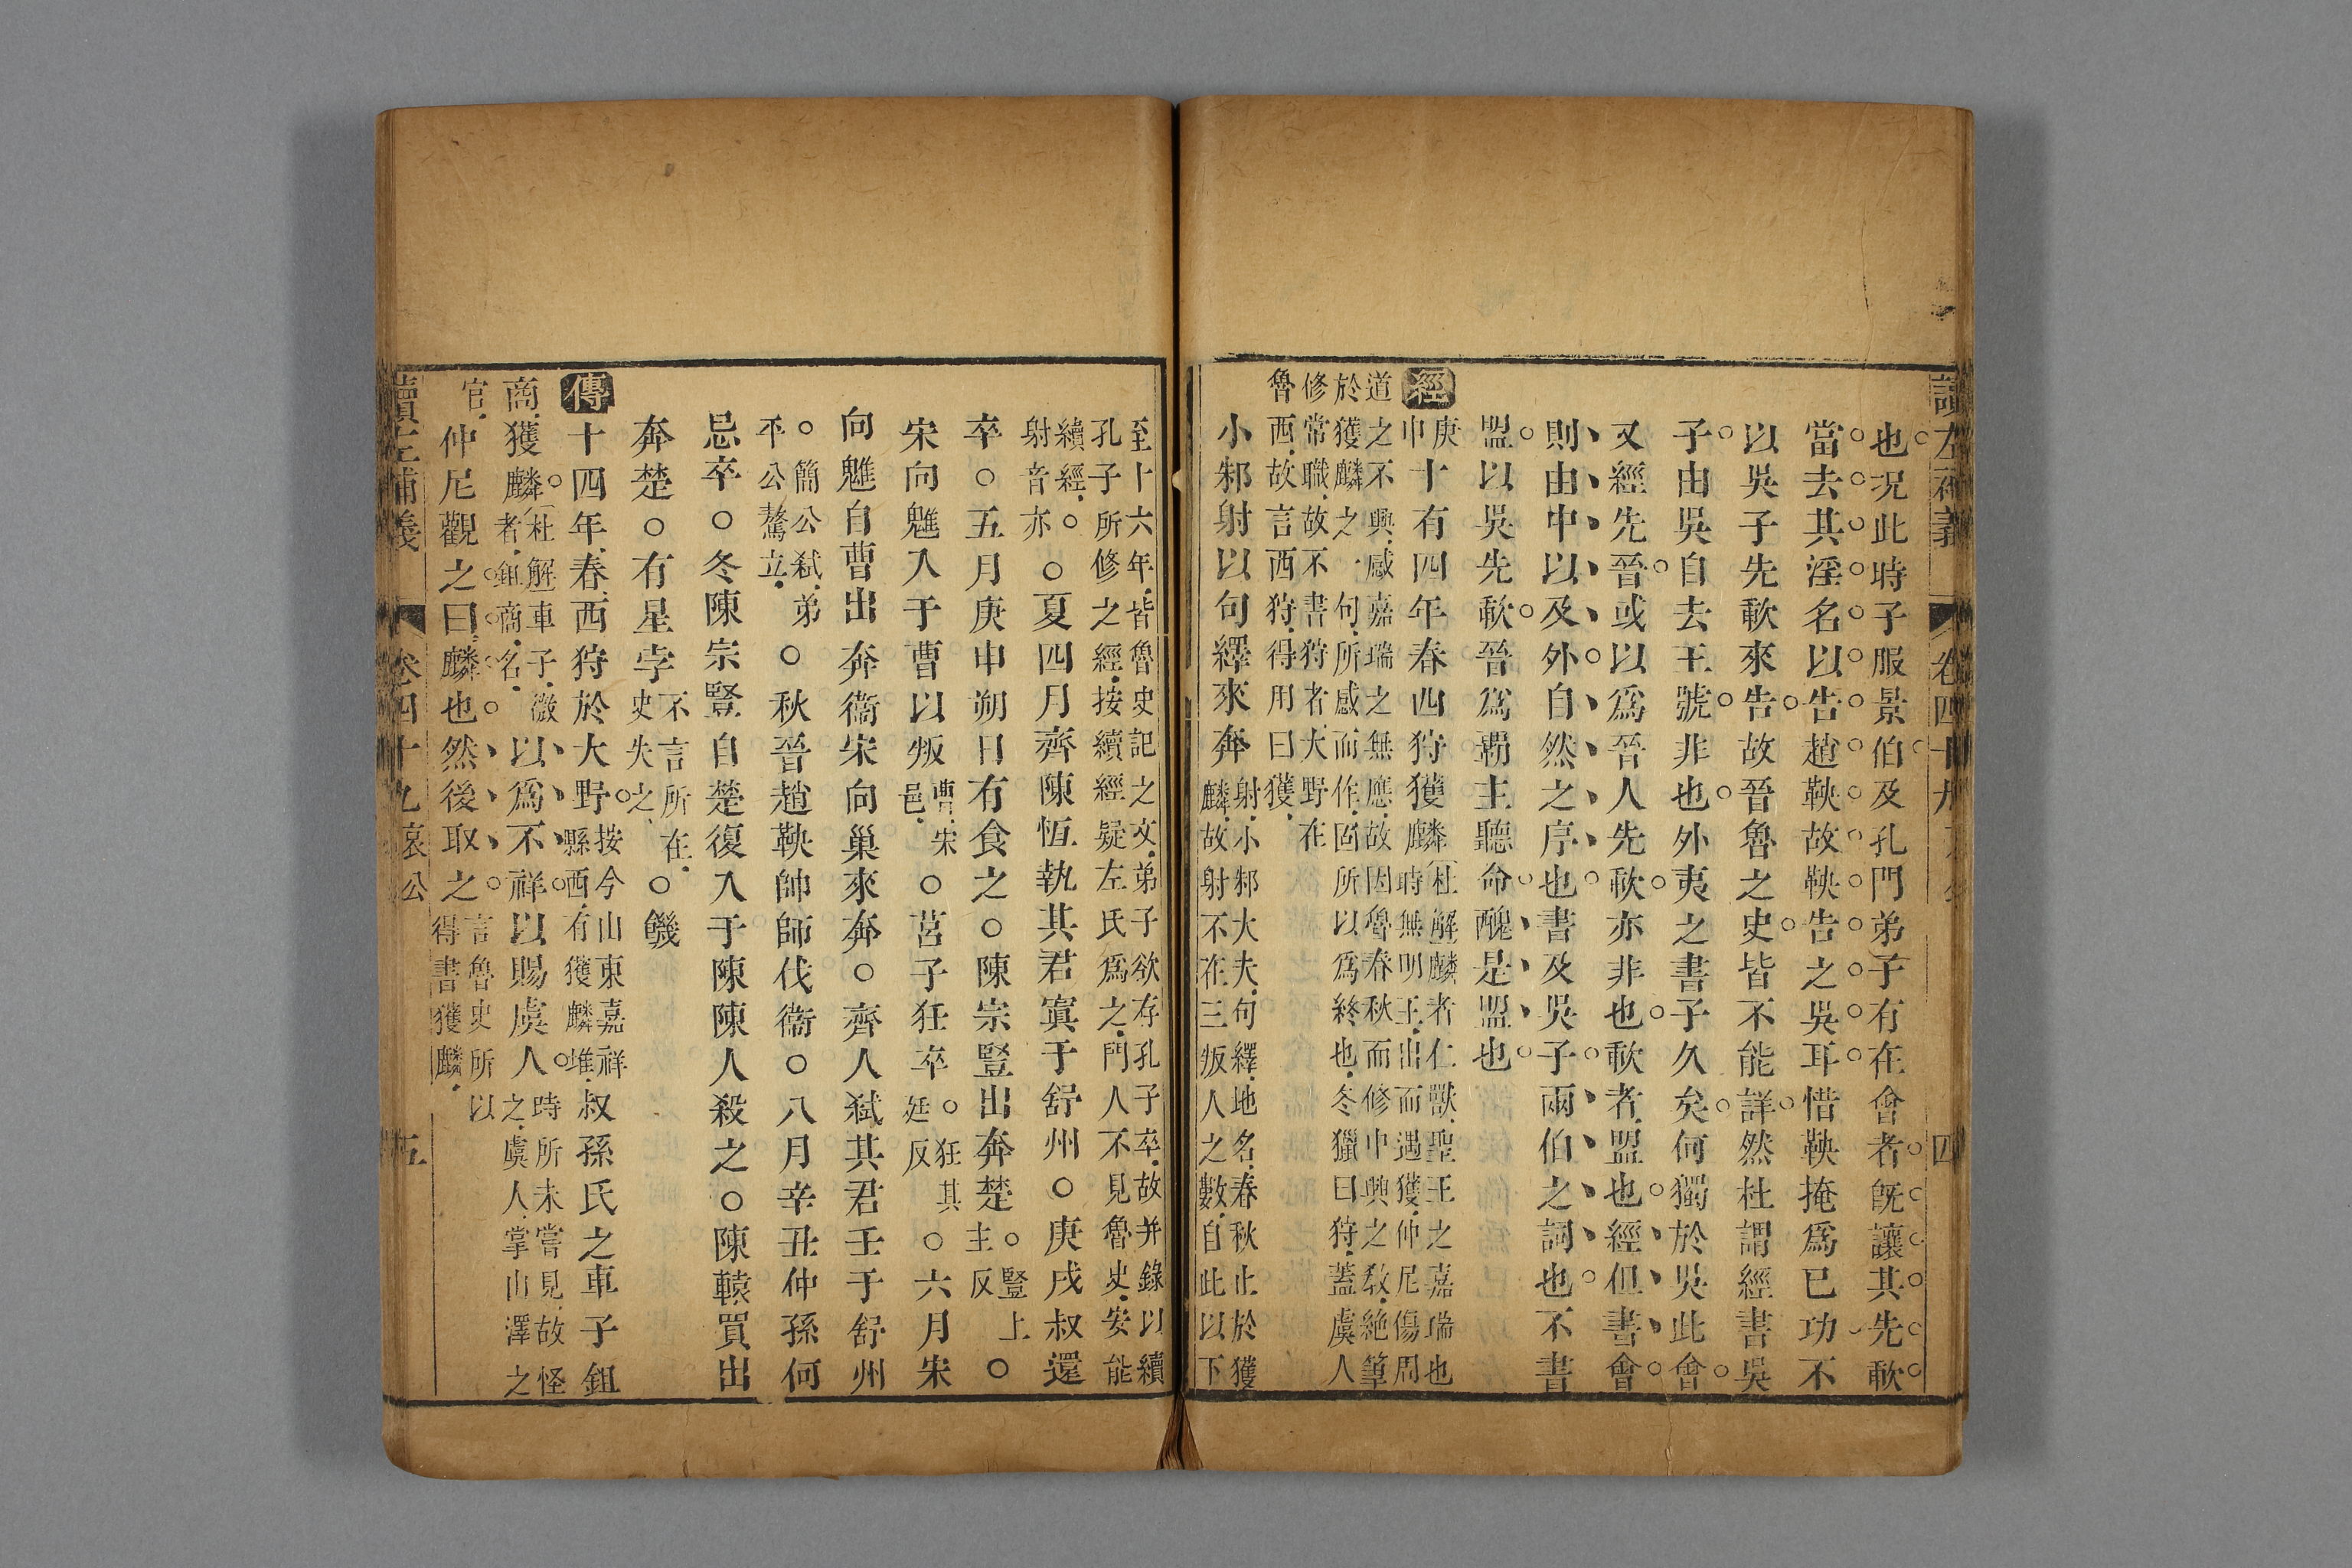 讀左補義 卷四十九 四
也況此時子服景伯及孔門弟子有在會者既讓其先歃
當去其淫名以告趙鞅故鞅告之吳耳惜鞅掩爲已功不
以吳子先歃來告故晉魯之史皆不能詳然杜謂經書吳
子由吳自去王號非也外夷之書子久矣何獨於吳此會
又經先晉或以爲晉人先歃亦非也歃者盟也經但書會
則由中以及外自然之序也書及吳子兩伯之詞也不書
盟以吳先歃晉爲霸主聽命醜是盟也
經庚申十有四年春西狩獲麟杜解麟者仁獸聖王之嘉瑞也
時無明王出而遇獲仲尼傷周
道之不興感嘉瑞之無應故因魯春秋而修中興之敎絶筆
於獲麟之一句所感而作固所以爲終也冬獵曰狩蓋虞人
修常職故不書狩者大野在
魯西故言西狩得用曰獲
小邾射以句繹來奔射小邾大夫句繹地名春秋止於獲
麟故射不在三叛人之數自此以下
至十六年皆魯史記之文弟子欲存孔子卒故并錄以續
孔子所修之經按續經疑左氏爲之門人不見魯史安能
續經○
射音亦○夏四月齊陳恆執其君寘于舒州○庚戌叔還
卒○五月庚申朔日有食之○陳宗豎出奔楚○豎上
主反○
宋向魋入于曹以叛曹宋
邑○莒子狂卒○狂其
廷反○六月宋
向魋自曹出奔衞宋向巢來奔○齊人弑其君壬于舒州
○簡公弑弟
平公驁立○秋晉趙鞅帥師伐衞○八月辛丑仲孫何
忌卒○冬陳宗豎自楚復入于陳陳人殺之○陳轅買出
奔楚○有星孛不言所在
史失之○饑
傳十四年春西狩於大野按今山東嘉祥
縣西有獲麟堆叔孫氏之車子鉏
商獲麟杜解車子微
者鉏商名以爲不祥以賜虞人時所未嘗見故怪
之虞人掌山澤之
官仲尼觀之曰麟也然後取之言魯史所以
得書獲麟
讀左補義 卷四十九哀公 五